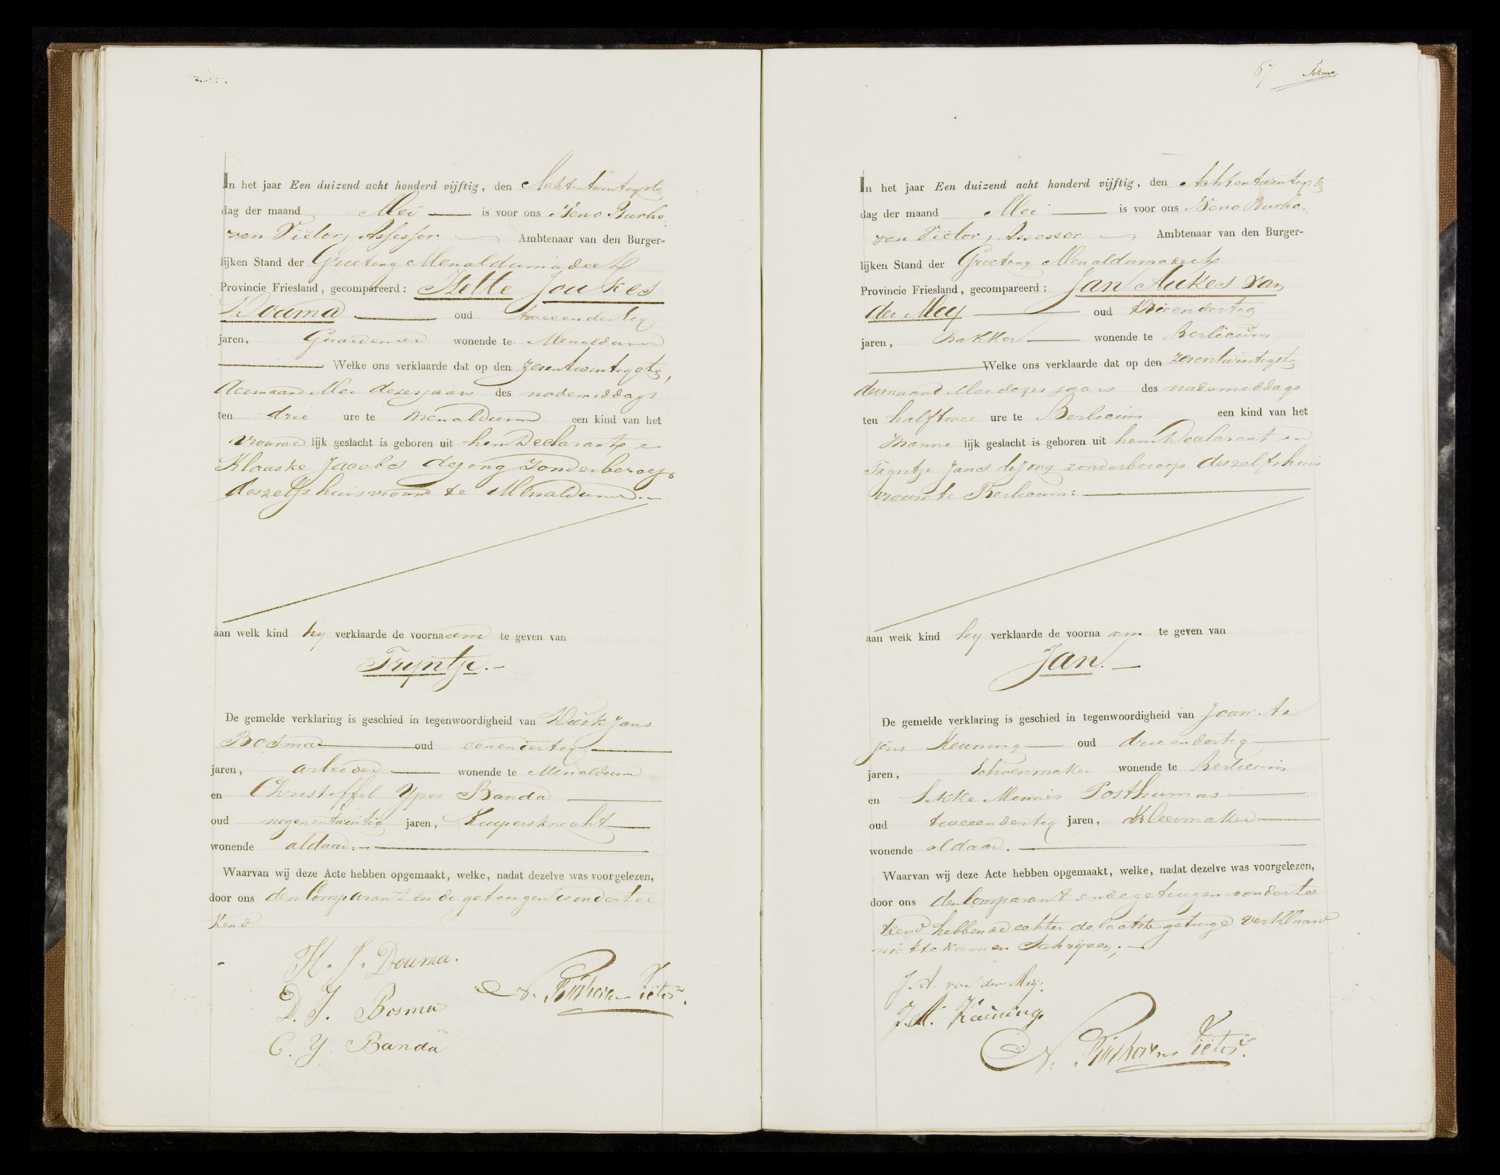 In het jaar Een duizend acht honderd vijftig, den Achtentwintigste
dag der maand Mei is voor ons
van Viëtor, Assessor Ambtenaar van den Burger-
lijken Stand der Grietenij Menaldumadeel
Provincie Friesland, gecompareerd: Helle Joukes
Douma oud tweeendertig
jaren, Gardenier wonende te Menaldum
Welke ons verklaarde dat op den zesentwintigste,
der maand Mei dezes jaars des nademiddags
ten drie ure te Menaldum een kind van het
vrouwe lijk geslacht is geboren uit hem Declarant en
Klaaske Jacobs de Jong zonder beroep,
deszelfs huisvrouw te Menaldum.
aan welk kind hij verklaarde de voornaam te geven van
Trijntje.
De gemelde verklaring is geschied in tegenwoordigheid van Dirk Jans
Bosma oud eenenveertig
jaren, arbeider wonende te Menaldum
en Christoffel Ypes Banda
oud negenentwintig jaren, Kuipersknecht
wonende aldaar.
Waarvan wij deze Acte hebben opgemaakt, welke, nadat dezelve was voorgelezen,
door ons den Comparant en de getuigen is ondertee
kend
H. J. Douma.
D. J. Bosma
C. Y. Banda
67
In het jaar Een duizend acht honderd vijftig, den Achtentwintigste
dag der maand Mei is voor ons
van Viëtor, Assessor Ambtenaar van den Burger-
lijken Stand der Grietenij Menaldumadeel
Provincie Friesland, gecompareerd: Jan Aukes van
der Meij oud Drieendertig
jaren, Bakker wonende te Berlicum
Welke ons verklaarde dat op den zesentwintigste
der maand Mei dezes jaars des nademiddags
ten half twee ure te Berlicum een kind van het
Manne lijk geslacht is geboren uit hem Declarant en
Trijntje Jans de Jong zonder beroep deszelfs huis
vrouw te Berlicum:
aan welk kind hij verklaarde de voornaam te geven van
Jan.
De gemelde verklaring is geschied in tegenwoordigheid van
Keuning oud drieendertig
jaren, Schoenmaker wonende te Berlicum
en Sikke Posthumus
oud tweeendertig jaren, Kleermaker
wonende aldaar.
Waarvan wij deze Acte hebben opgemaakt, welke, nadat dezelve was voorgelezen,
door ons den Comparant en de getuigen ondertee
kend hebbende echter de laatste getuige verklaard
niet te kunnen schrijven.
J. A. van der Meij.